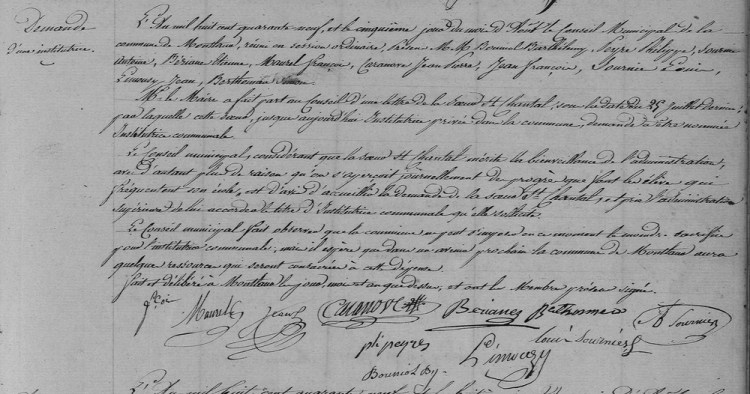 Demande
d'une institutrice.
L'An mil huit cent quarante neuf, et le cinquième jour du mois d'Août le Conseil Municipal de la
commune de Montlaur, réuni en session ordinaire, présens M.M. Bouniol Barthélemy, Peyre Philippe, Fournier
Antoine, Béziane Etienne, Maurel françois, Caranove Jean Pierre, Jean François, Fournier Louis,
Limouzy Jean, Berthomieu Simon.
M. le Maire a fait part au Conseil d'une lettre de la Sœur St Chantal, sous la date du 25 Juillet dernier,
par laquelle cette sœur, jusque aujourd'hui Institutrice privée dans la commune, demande à être nommée
Institutrice communale.
Le Conseil municipal, considérant que la sœur St Chantal mérite la bienveillance de l'administration,
avec d'autant plus de raison qu'on s'aperçoit journellement du progrès que font les élèves qui
fréquentent son école, est d'avis d'accueillir la demande de la sœur St Chantal, et prie l'administration
Supérieure de lui accorder le titre d'Institutrice communale qu'elle sollicite.
Le Conseil municipal fait observer que la commune ne peut s'imposer en ce moment le moindre sacrifice
pour l'institutrice communale; mais il espère que dans un avenir prochain la commune de Montlaur aura
quelque ressource qui seront consacrées à cette dépense.
fait et délibéré à Montlaur le jour, mois et an que dessus, et ont les Membres présens signé.
Maurel Jean Caranove Bézianes Berthomieu A Fournier
ph peyre Limouzy Louis Fournier
Bouniol By
L'An mil huit cent quarante neuf